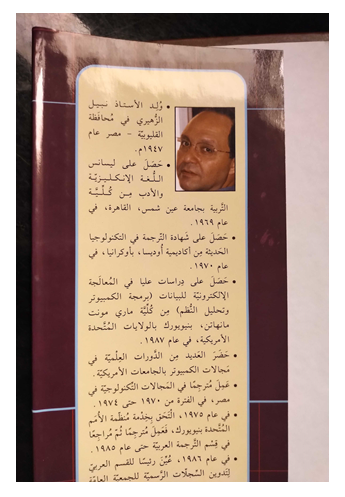 • وُلِد الأستاذ نبيل
الزُّهيري في مُحافَظة
القليوبيّة - مصر عام
١٩٤٧م.
• حَصَلَ على ليسانس
اللُّغة الإنكليزيّة
والأدب مِن كُلِّيَّة
التَّربية بجامعة عين شمس، القاهرة، في
عام ١٩٦٩.
• حَصَلَ على شَهادة التَّرجمة في التكنولوجيا
الحَديثة مِن أكاديمية أوديسا، بأوكرانيا، في
عام ١٩٧٠.
• حَصَلَ على دِراسات عليا في المُعالَجة
الإلكترونيّة للبيانات (برمجة الكمبيوتر
وتحليل النُّظم) مِن كُلِّيَّة ماري مونت
مانهاتن، بنيويورك بالولايات المُتَّحدة
الأمريكية، في عام ١٩٨٧.
• حَضَرَ العَديد مِن الدَّورات العِلْميَّة في
مَجالات الكمبيوتر بالجامعات الأمريكيّة.
• عَمِلَ مُترجِمًا في المَجالات التِّكنولوجيّة في
مصر، في الفترة من ١٩٧٠ حتى ١٩٧٤.
• في عام ١٩٧٥، الْتَحَق بِخِدْمة مُنظَّمة الأُمَم
المُتَّحدة بنيويورك، فَعَمِلَ مُترجِمًا ثُمَّ مُراجِعًا
في قِسْم التَّرجمة العربيّة حتى عام ١٩٨٥.
• في عام ١٩٨٦، عُيِّنَ رئيسًا للقسم العربيّ
لِتَدوين السِّجلّات الرَّسميّة للجمعيّة العامّة